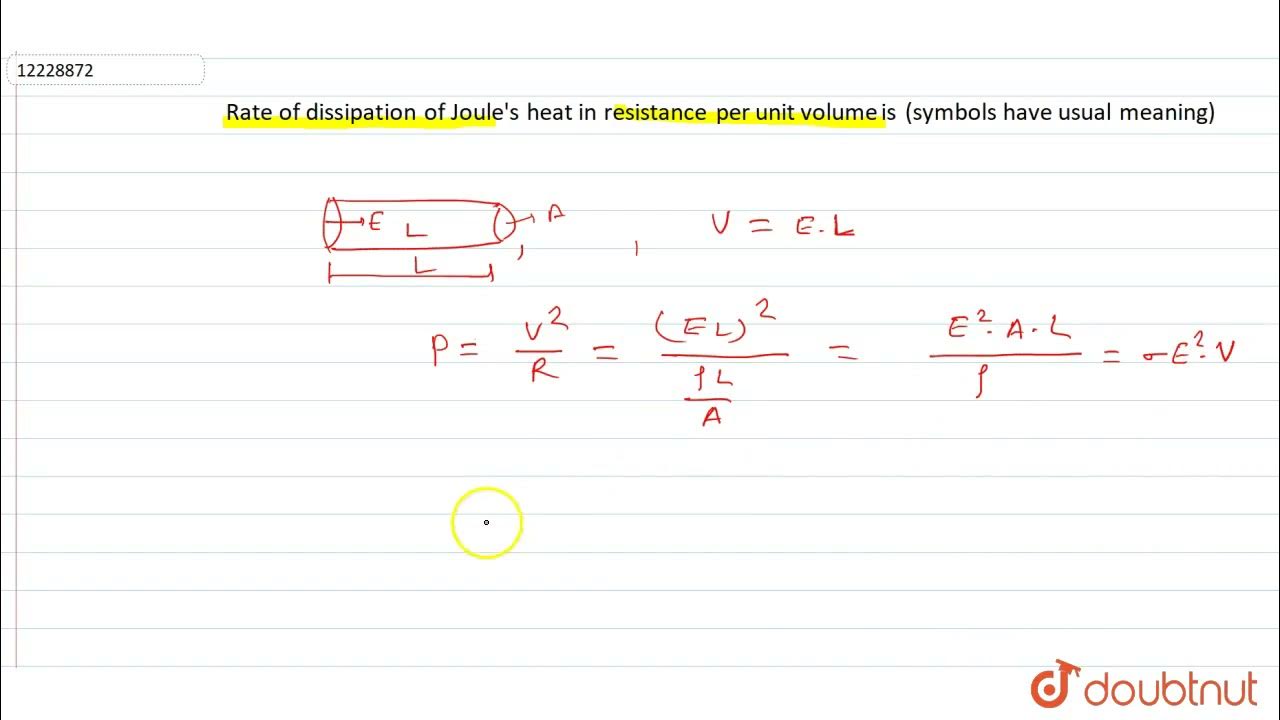 12228872
Rate of dissipation of Joule's heat in resistance per unit volume is (symbols have usual meaning)
E L A
L
V = E.L
P = V²/R = (EL)²/(ρL/A) = E².A.L/ρ = σE².V
doubtnut